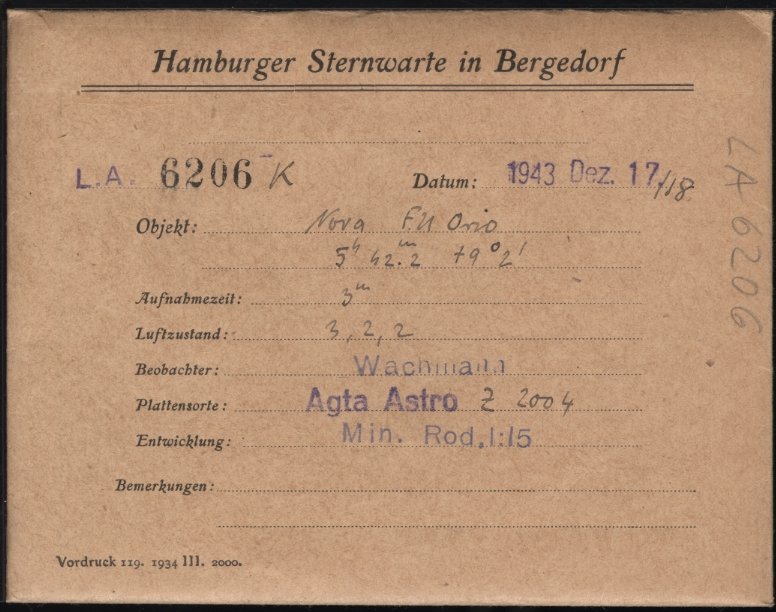 Hamburger Sternwarte in Bergedorf
L.A. 6206 K Datum: 1943 Dez. 17./18.
Objekt: Nova FU Orio
5h 42.m2 +9°2'
Aufnahmezeit: 3m
Luftzustand: 3, 2, 2
Beobachter: Wachmann
Plattensorte: Agfa Astro Z 2004
Entwicklung: Min. Rod. 1:15
Bemerkungen:
Vordruck 119. 1934 III. 2000.
LA 6206